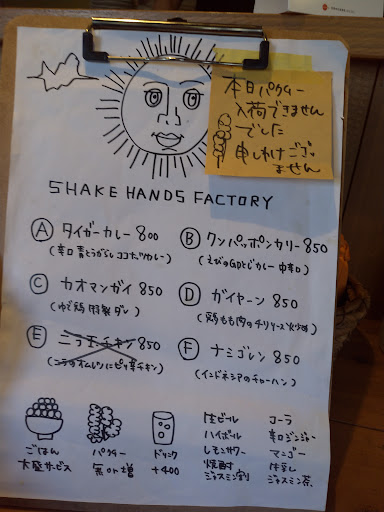 本日パクチー
入荷できません
でした
申しわけござい
ません
SHAKE HANDS FACTORY
Ⓐ タイガーカレー 800
(辛口 青とうがらし ココナツカレー)
Ⓑ クンパッポンカリー 850
(えびの卵とじカレー 中辛口)
Ⓒ カオマンガイ 850
(ゆで鶏 特製ダレ)
Ⓓ ガイヤーン 850
(鶏もも肉のチリソース
Ⓔ ニラ玉チキン 850
(ニラのオムレツにピリ辛チキン)
Ⓕ ナミゴレン 850
(インドネシアのチャーハン)
ごはん
大盛サービス
パクチー
無 or 増
ドリンク
+400
生ビール
ハイボール
レモンサワー
焼酎
ジャスミン割
コーラ
辛口ジンジャー
マンゴー
牛乳
ジャスミン茶